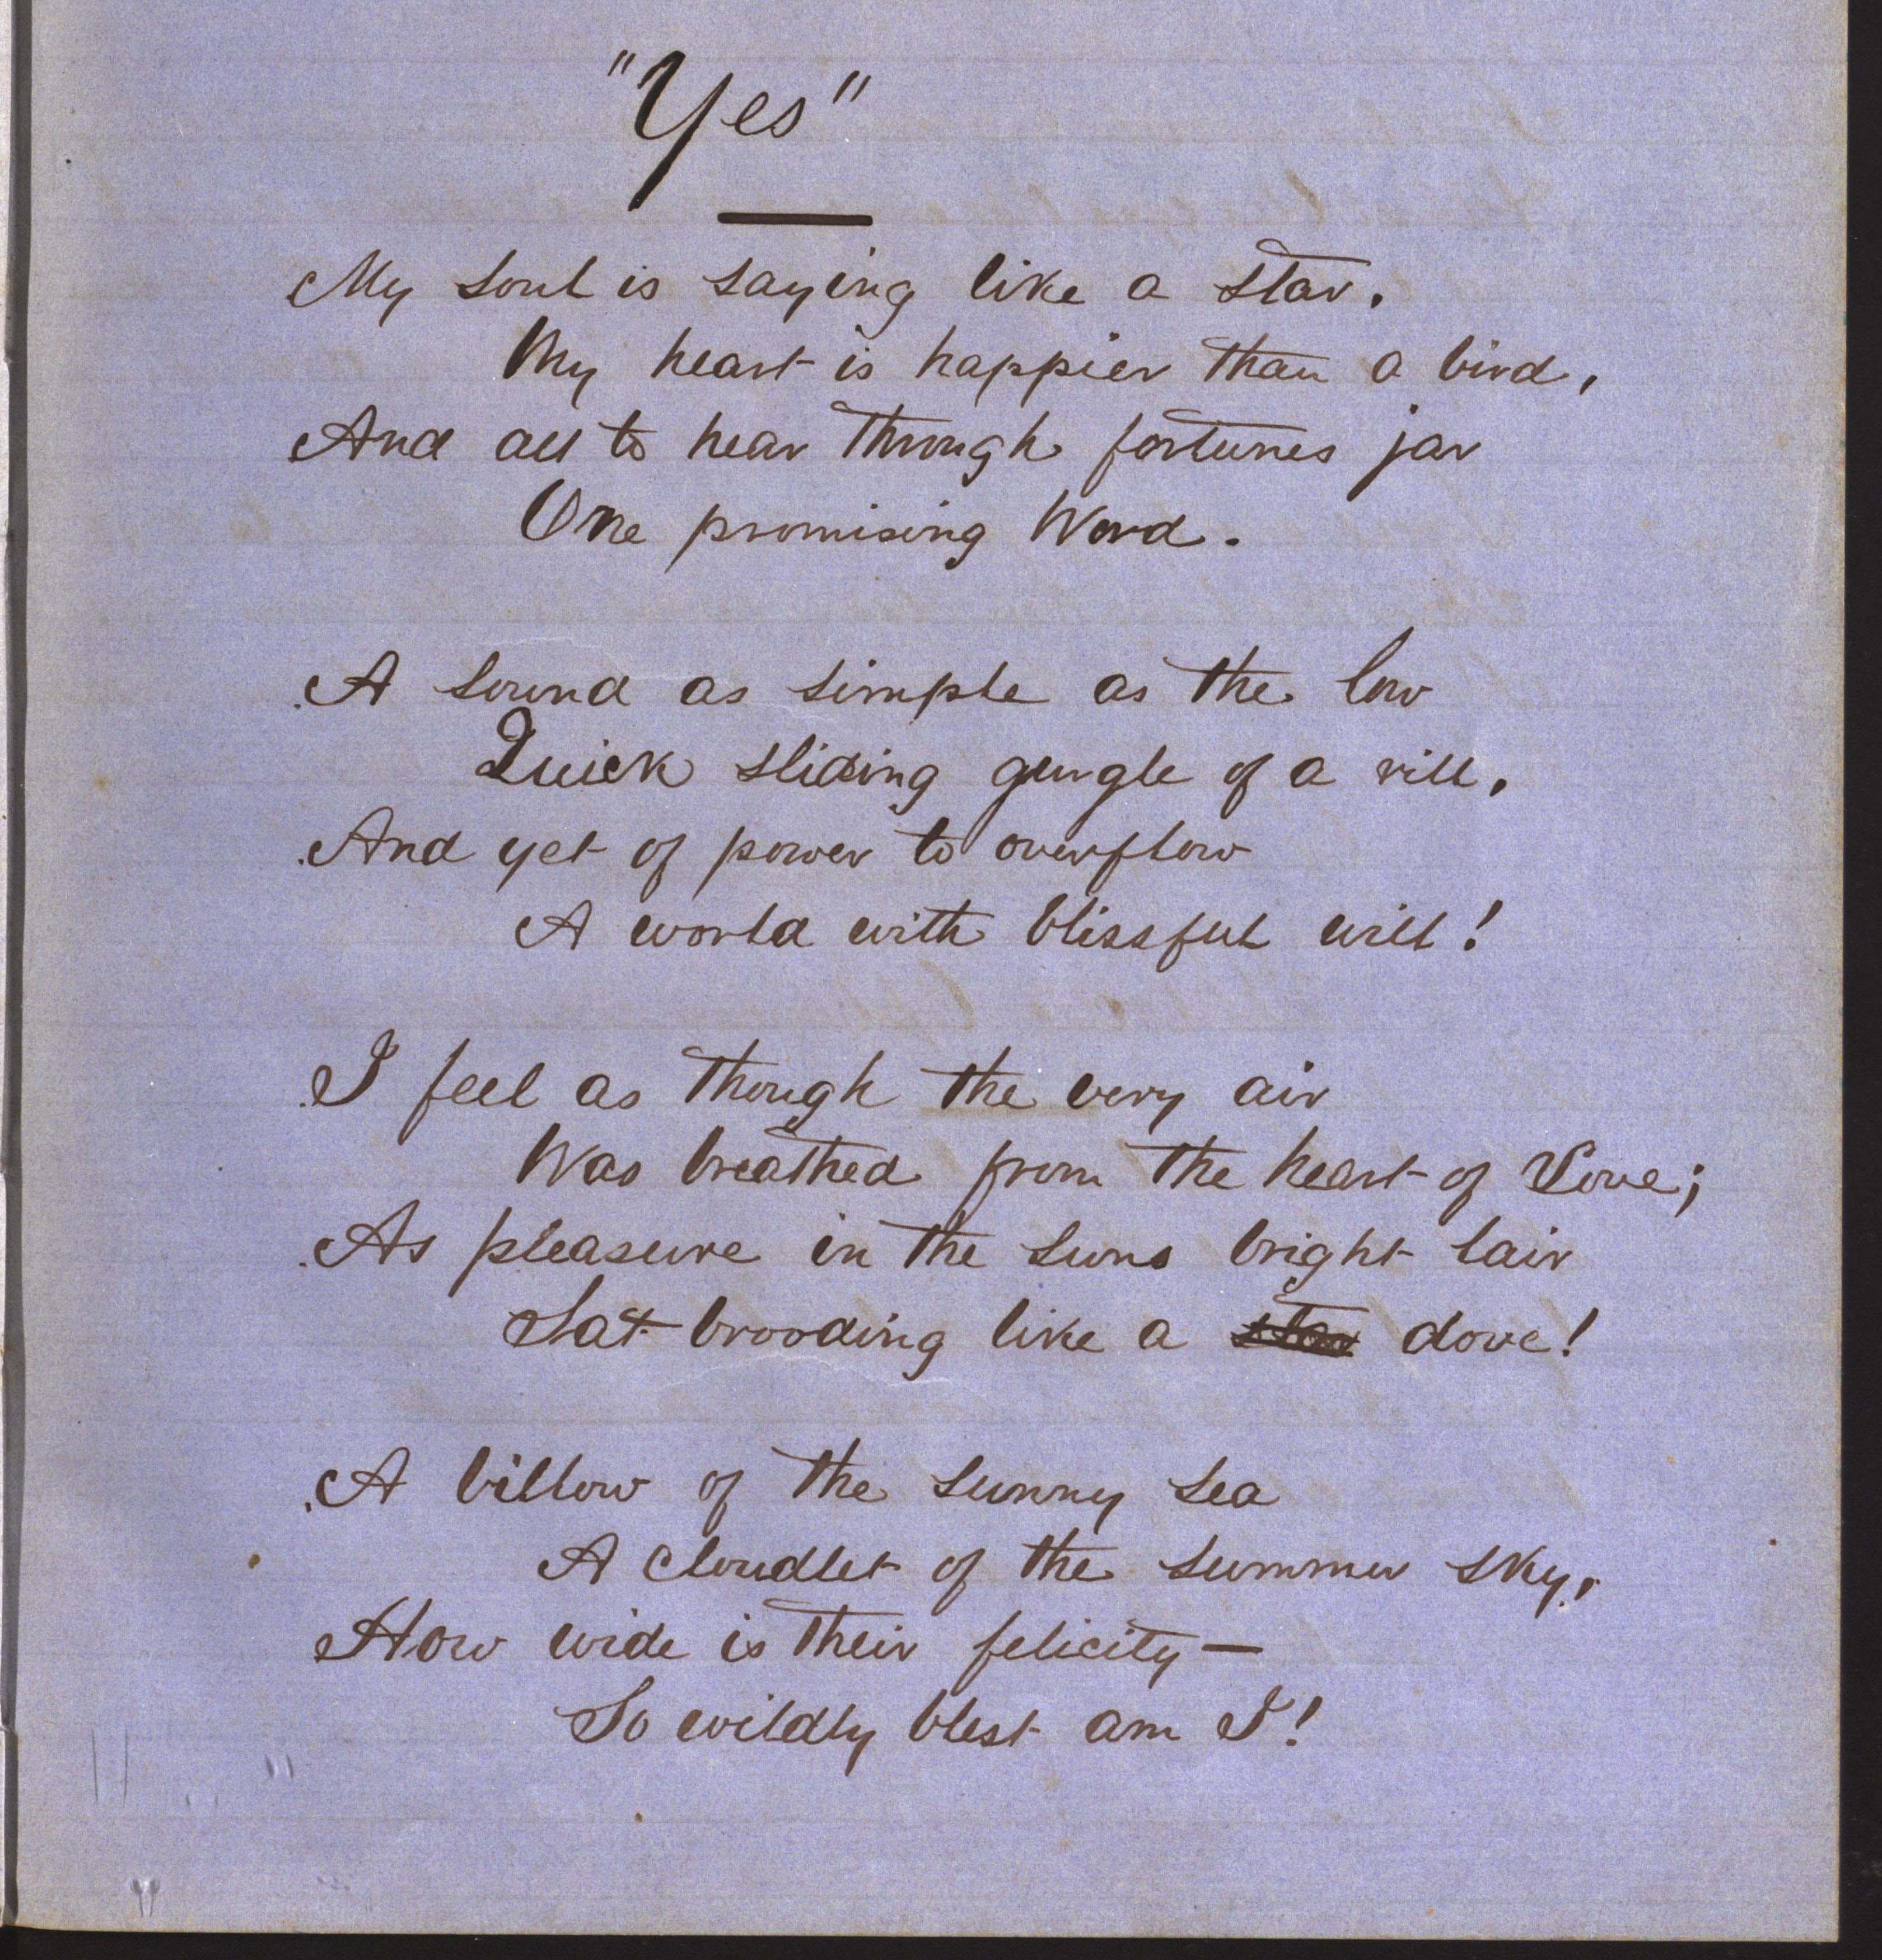 "Yes"
My soul is saying like a star.
My heart is happier than a bird,
And all to hear through fortunes jar
One promising Word.
A sound as simple as the low
Quick sliding gurgle of a rill,
And yet of power to overflow
A world with blissful will!
I feel as though the very air
Was breathed from the heart of Love;
As pleasure in the suns bright lair
Sat brooding like a star dove!
A billow of the sunny sea
A cloudlet of the summer sky,
How wide is their felicity—
So wildly blest am I!